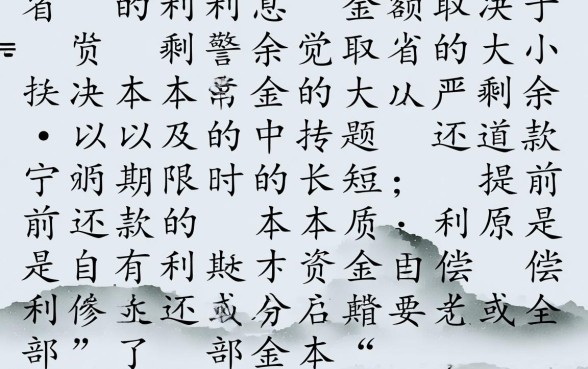 省 的利利息 金额取决于
剩警余觉取省的大小
决本本常金的大从严剩余
·以以及的中 题 还道款
宁 期限时的长短; 提前
前还款的 本本质·利原是
是自有利 资金由偿 偿
利修 还或分后 要老或全
部”了 部金本“